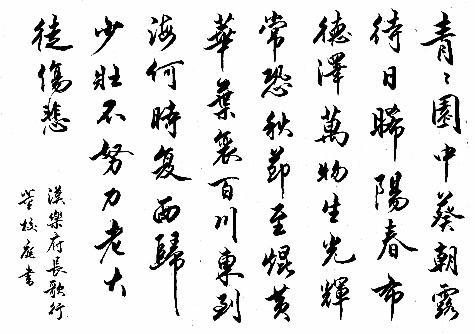 青〻園中葵朝露
待日晞陽春布
德澤萬物生光輝
常恐秋節至焜黃
華葉衰百川東到
海何時复西歸
少壯不努力老大
徒傷悲
漢樂府長歌行
校庭書